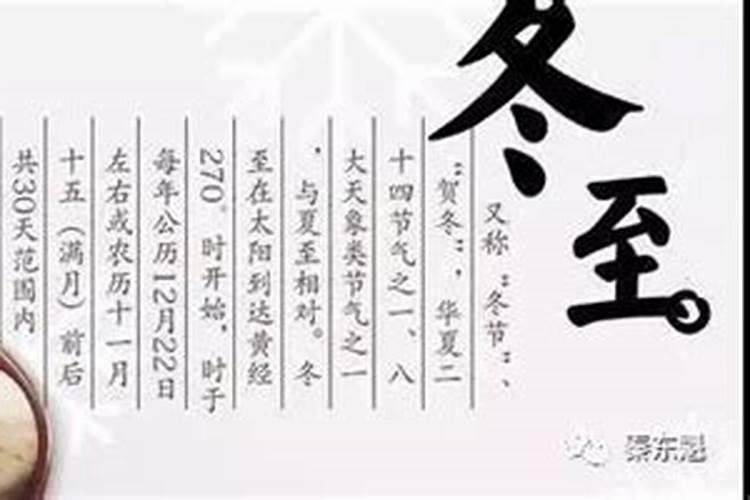 冬至。
又称“冬节”、
“贺冬”，华夏二
十四节气之一、八
大天象类节气之一
，与夏至相对。冬
至在太阳到达黄经
270°时开始，时于
每年公历12月22日
左右或农历十一月
十五（满月）前后
共30天范围内